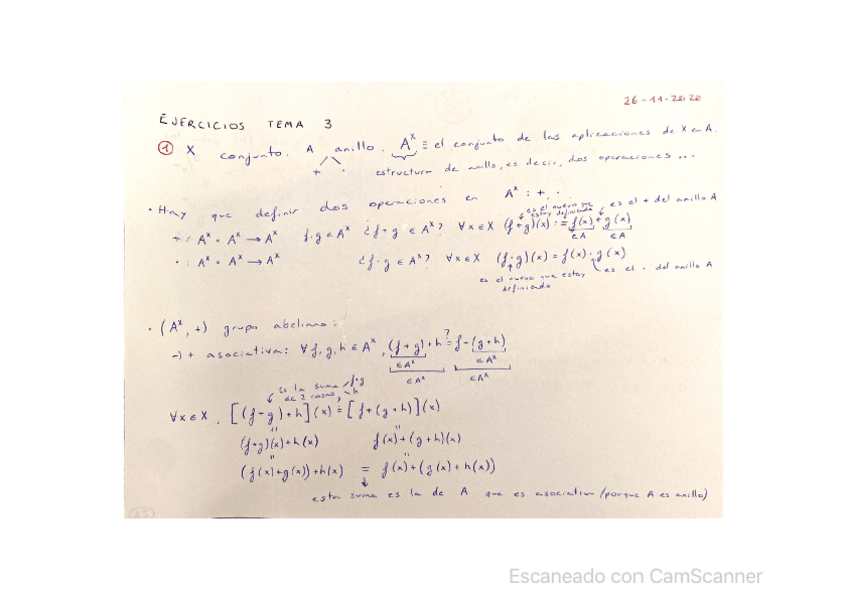 26-11-2020
EJERCICIOS TEMA 3
① X conjunto. A anillo. A^X ≡ el conjunto de las aplicaciones de X en A.
+ ·
estructura de anillo, es decir, dos operaciones ...
· Hay que definir dos operaciones en A^X : +, ·
es el nuevo que estoy definiendo
es el + del anillo A
+ : A^X × A^X → A^X f, g ∈ A^X ¿f+g ∈ A^X? ∀x∈X (f+g)(x) := f(x)+g(x)
∈A ∈A
· : A^X × A^X → A^X ¿f·g ∈ A^X? ∀x∈X (f·g)(x) = f(x)·g(x)
es el nuevo que estoy definiendo
es el · del anillo A
· (A^X, +) grupo abeliano:
→) + asociativa: ∀f,g,h ∈ A^X, (f+g)+h ?= f+(g+h)
∈A^X ∈A^X
∈A^X ∈A^X
es la suma de 2 cosas, f+g h
∀x∈X. [(f+g)+h](x) = [f+(g+h)](x)
" "
(f+g)(x)+h(x) f(x)+(g+h)(x)
" "
(f(x)+g(x))+h(x) = f(x)+(g(x)+h(x))
esta suma es la de A que es asociativa (porque A es anillo)
Escaneado con CamScanner